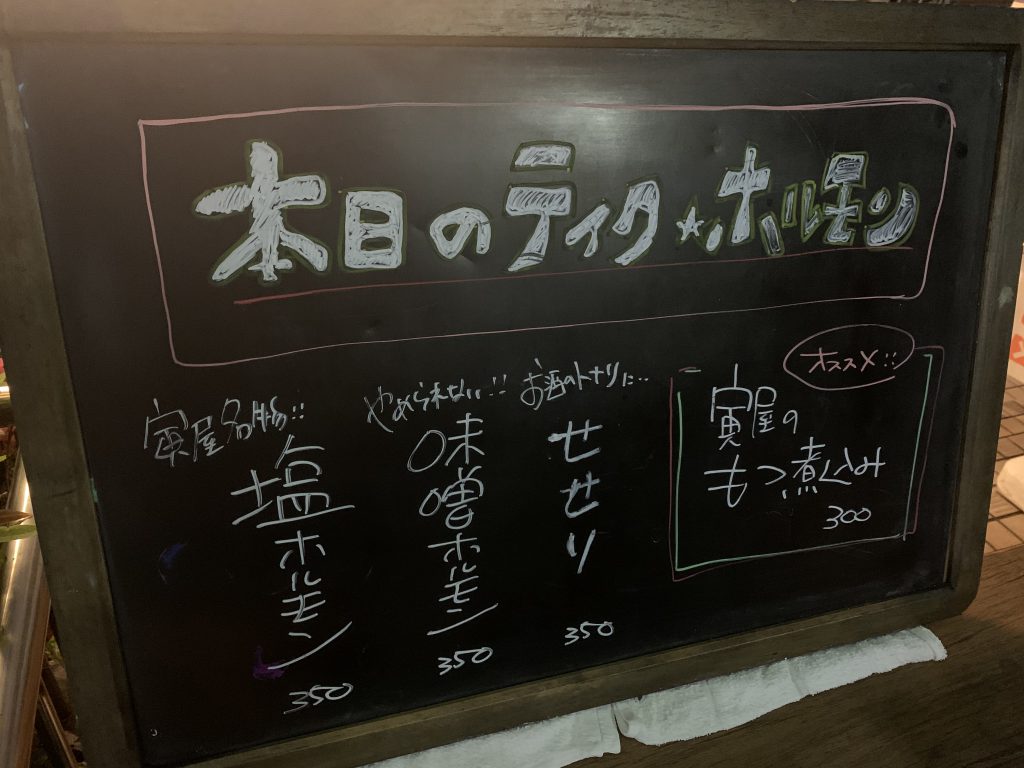 本日のテイク☆ホルモン
寅屋名物!!
塩ホルモン
350
やめられない!!
味噌ホルモン
350
お酒のトナリに..
せせり
350
オススメ!!
寅屋の
もつ煮込み
300